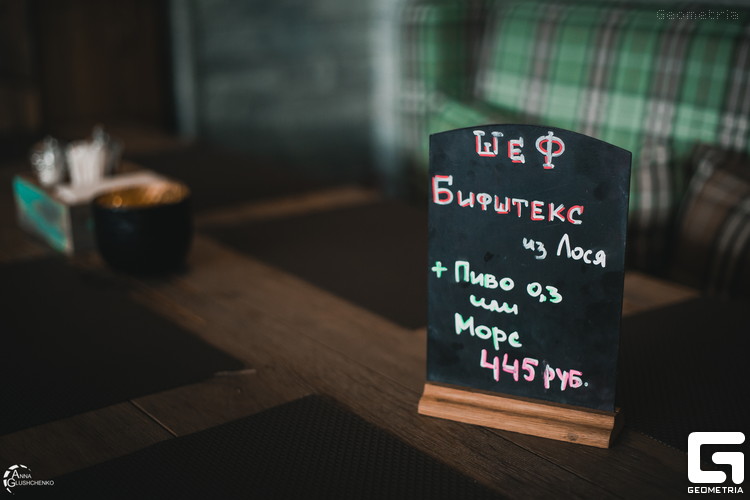 Geometria
ШЕФ
Бифштекс
из Лося
+ Пиво 0,3
или
Морс
445 руб.
ANNA
GLUSHCHENKO
GEOMETRIA